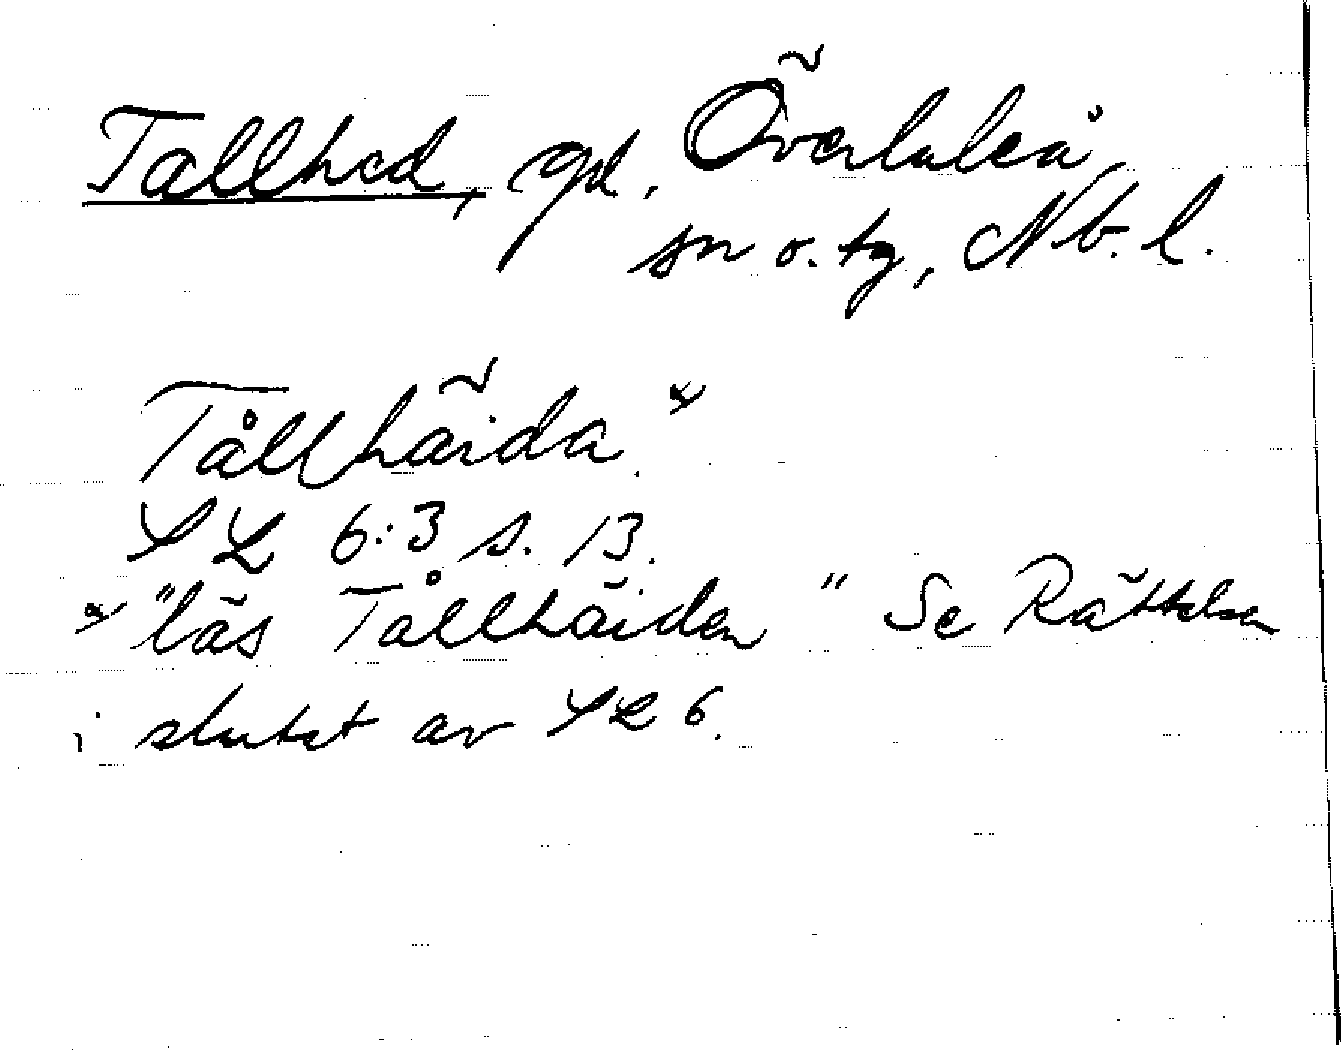 Tallhed, gd, Överluleå
sn o. tg, Nb. l.
Tållhäida *
SL 6:3 s. 13.
* "läs Tållhäiden" Se Rättelser
i slutet av SL 6.